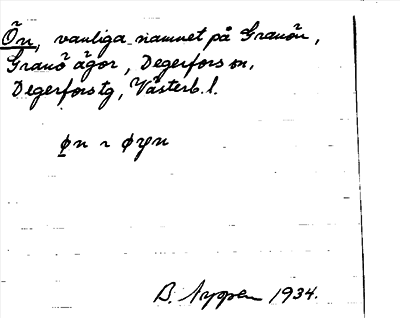 Ön, vanliga namnet på Granön,
Granö ägor, Degerfors sn,
Degerfors tg, Västerb. l.
ø̱n ~ øyn
B. Nygren 1934.